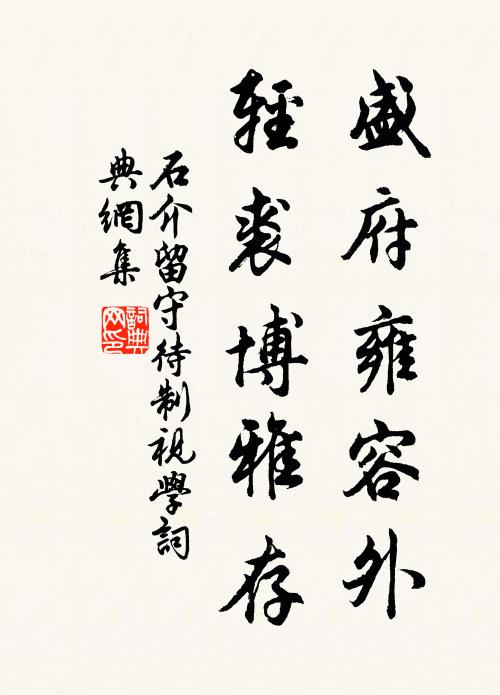 盛府雍容外
輕裘博雅存
石介留守待制視學詞
典網集
詞典
网印